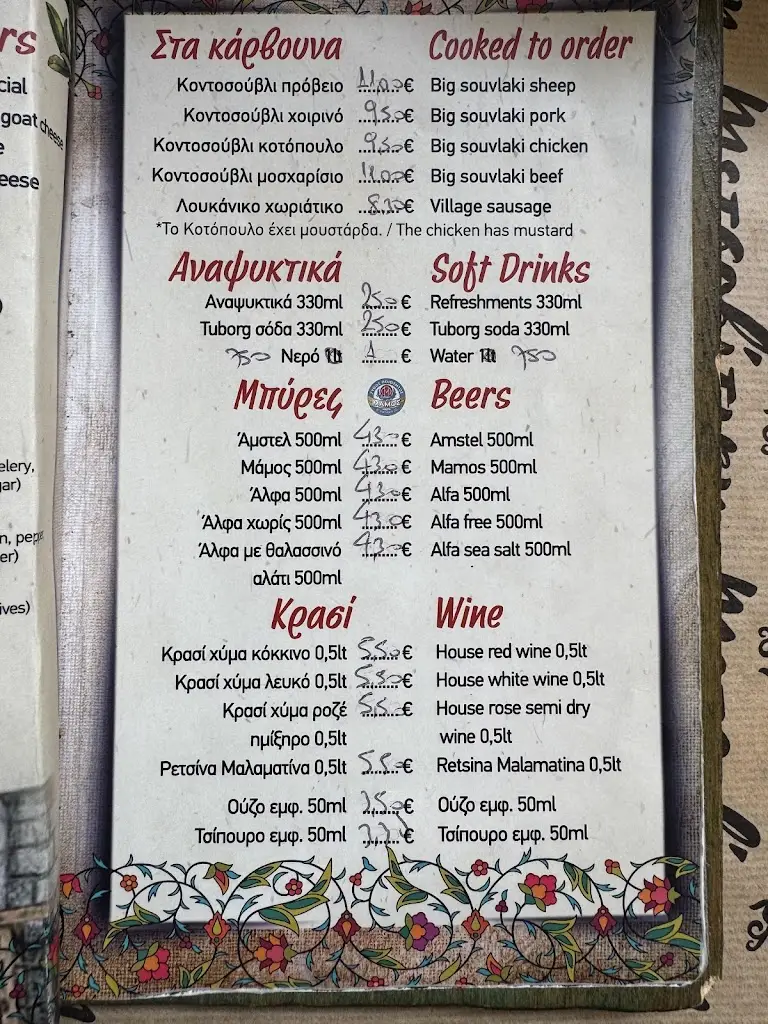 rs
cial
goat cheese
e
eese
elery,
er)
ives)
Στα κάρβουνα Cooked to order
Κοντοσούβλι πρόβειο 11,00€ Big souvlaki sheep
Κοντοσούβλι χοιρινό 9,50€ Big souvlaki pork
Κοντοσούβλι κοτόπουλο 9,50€ Big souvlaki chicken
Κοντοσούβλι μοσχαρίσιο 11,00€ Big souvlaki beef
Λουκάνικο χωριάτικο € Village sausage
*Το Κοτόπουλο έχει μουστάρδα. / The chicken has mustard
Αναψυκτικά Soft Drinks
Αναψυκτικά 330ml 2,50€ Refreshments 330ml
Tuborg σόδα 330ml 2,50€ Tuborg soda 330ml
750 Νερό 1lt 1€ Water 1lt 750
Μπύρες Beers
Άμστελ 500ml 4,30€ Amstel 500ml
Μάμος 500ml 4,30€ Mamos 500ml
Άλφα 500ml 4,30€ Alfa 500ml
Άλφα χωρίς 500ml 4,30€ Alfa free 500ml
Άλφα με θαλασσινό 4,30€ Alfa sea salt 500ml
αλάτι 500ml
Κρασί Wine
Κρασί χύμα κόκκινο 0,5lt 5,50€ House red wine 0,5lt
Κρασί χύμα λευκό 0,5lt 5,50€ House white wine 0,5lt
Κρασί χύμα ροζέ 5,50€ House rose semi dry
ημίξηρο 0,5lt wine 0,5lt
Ρετσίνα Μαλαματίνα 0,5lt 5,50€ Retsina Malamatina 0,5lt
Ούζο εμφ. 50ml € Ούζο εμφ. 50ml
Τσίπουρο εμφ. 50ml € Τσίπουρο εμφ. 50ml